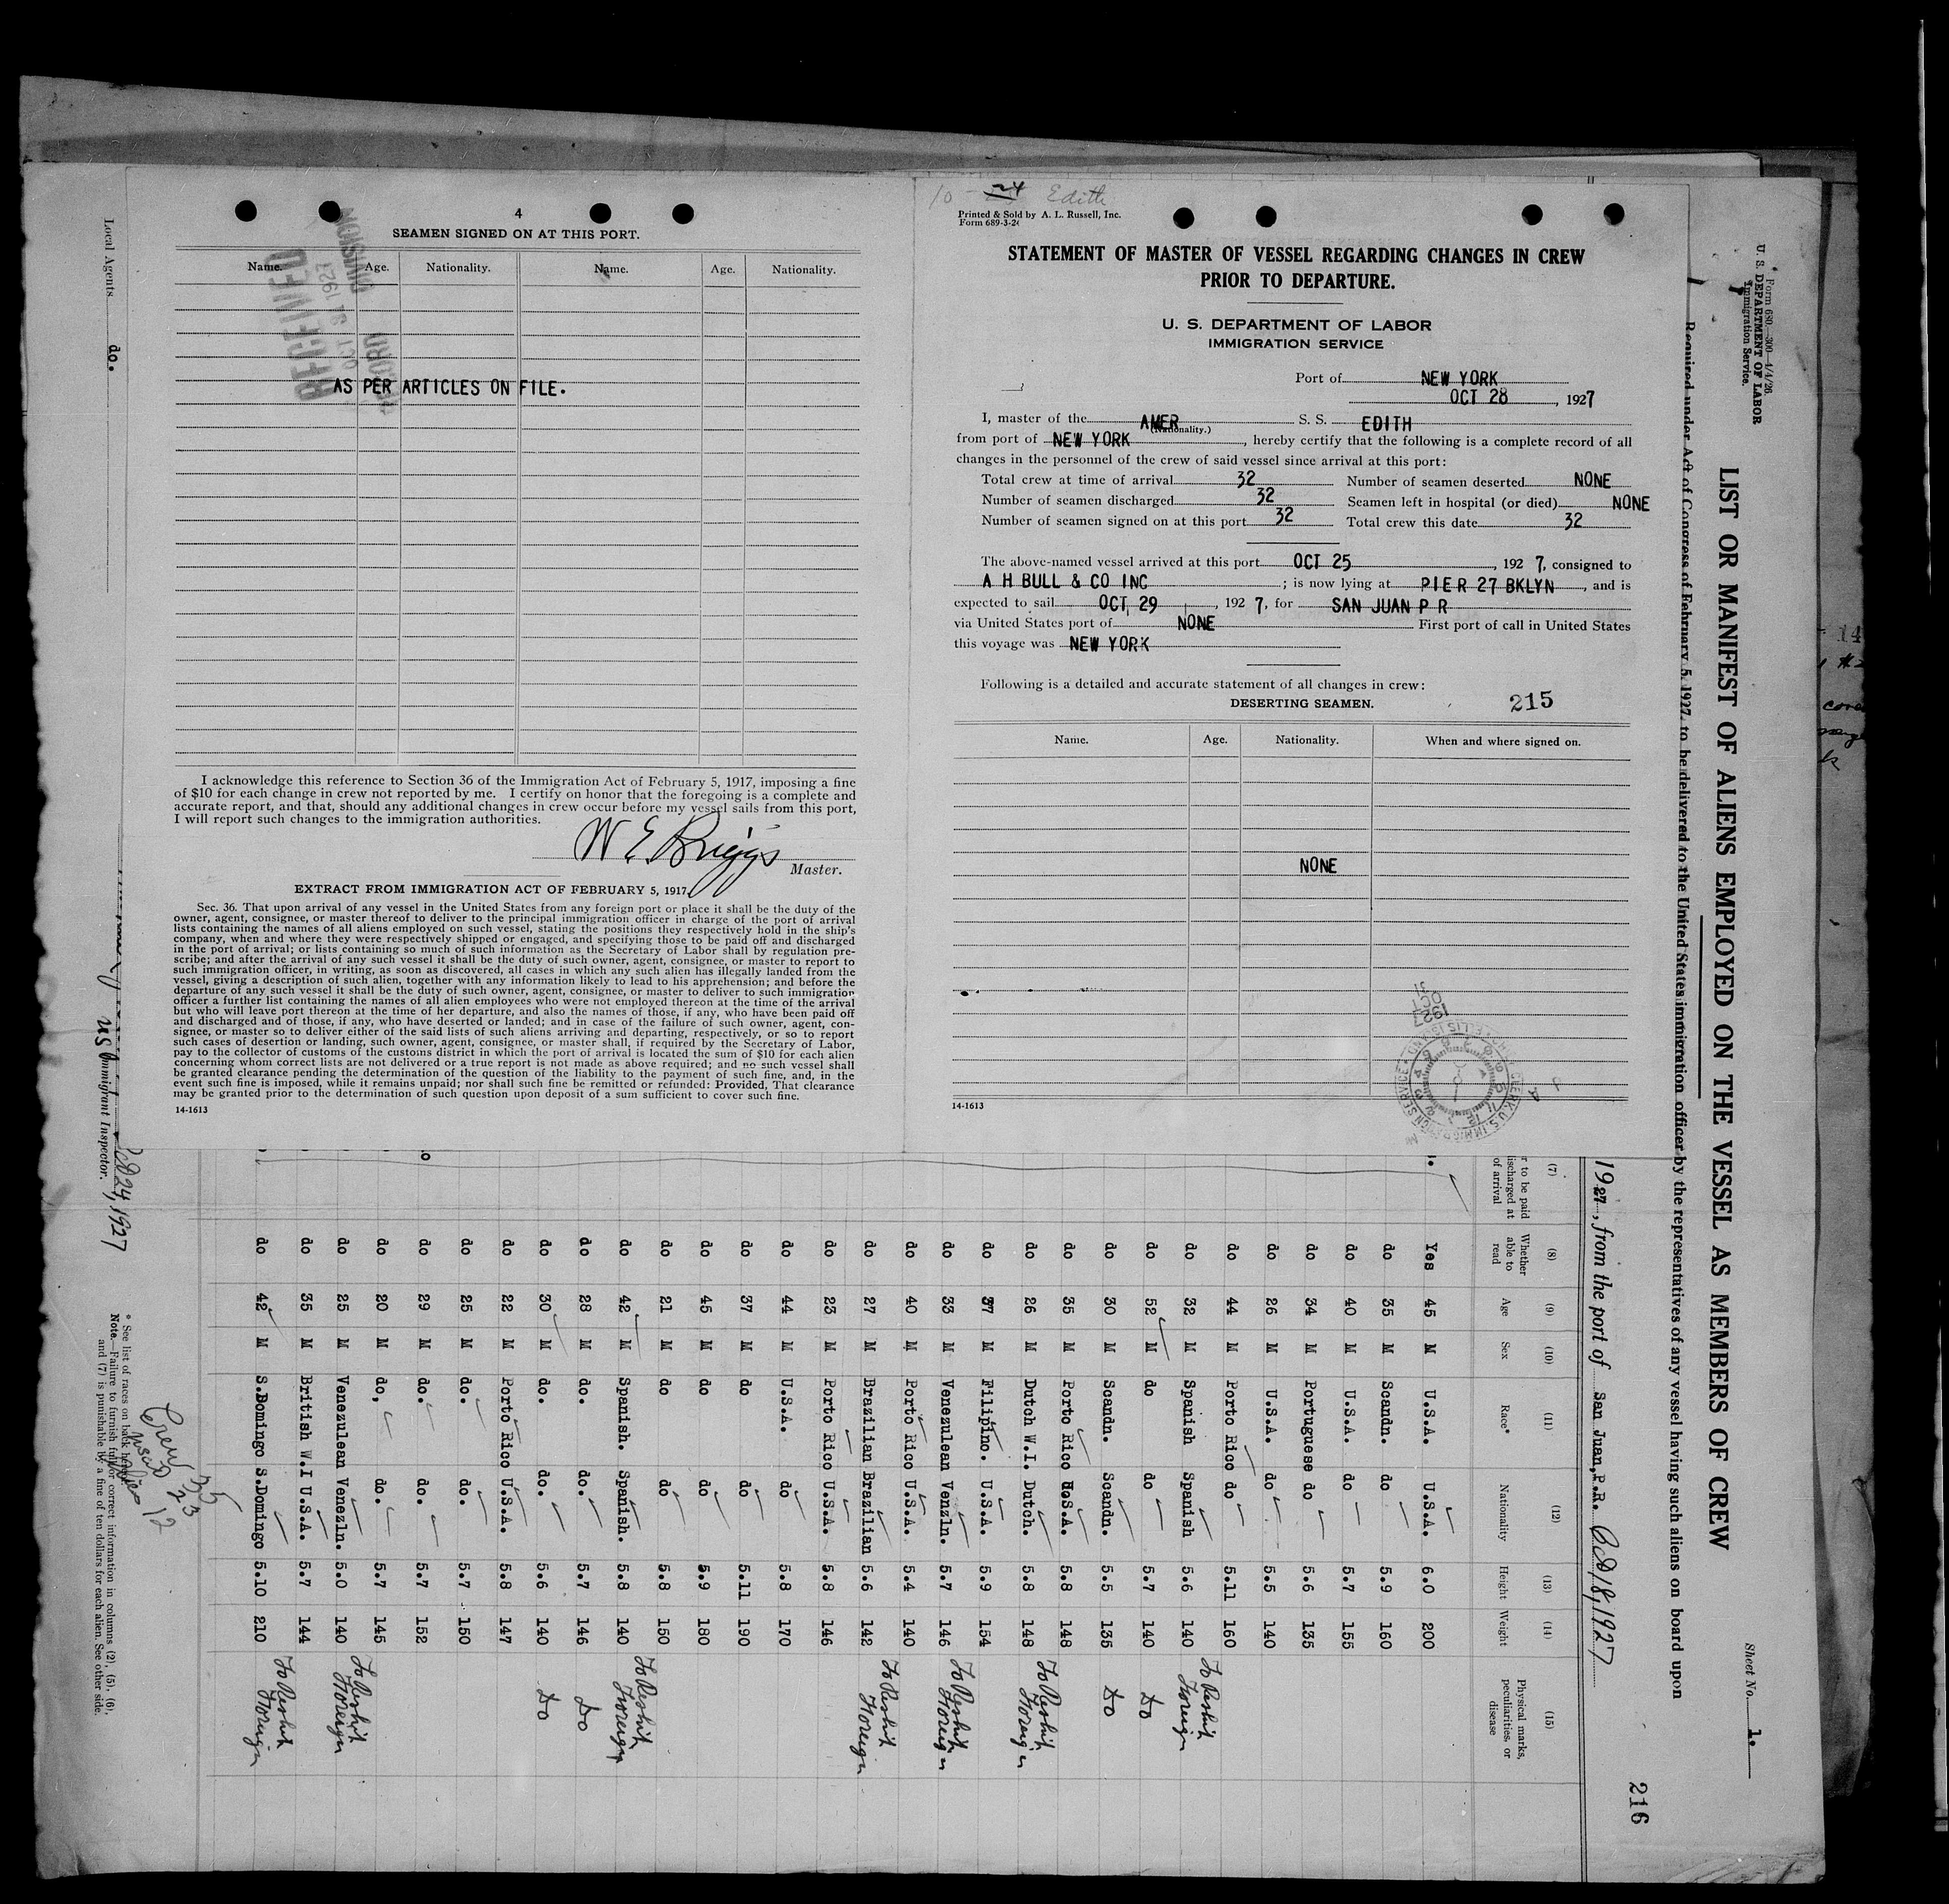 4
SEAMEN SIGNED ON AT THIS PORT.
Name. Age. Nationality. Name. Age. Nationality.
RECEIVED
OCT 31 1927
RECORD DIVISION
AS PER ARTICLES ON FILE.
I acknowledge this reference to Section 36 of the Immigration Act of February 5, 1917, imposing a fine
of $10 for each change in crew not reported by me. I certify on honor that the foregoing is a complete and
accurate report, and that, should any additional changes in crew occur before my vessel sails from this port,
I will report such changes to the immigration authorities.
W E Briggs
Master.
EXTRACT FROM IMMIGRATION ACT OF FEBRUARY 5, 1917.
Sec. 36. That upon arrival of any vessel in the United States from any foreign port or place it shall be the duty of the
owner, agent, consignee, or master thereof to deliver to the principal immigration officer in charge of the port of arrival
lists containing the names of all aliens employed on such vessel, stating the positions they respectively hold in the ship's
company, when and where they were respectively shipped or engaged, and specifying those to be paid off and discharged
in the port of arrival; or lists containing so much of such information as the Secretary of Labor shall by regulation pre-
scribe; and after the arrival of any such vessel it shall be the duty of such owner, agent, consignee, or master to report to
such immigration officer, in writing, as soon as discovered, all cases in which any such alien has illegally landed from the
vessel, giving a description of such alien, together with any information likely to lead to his apprehension; and before the
departure of any such vessel it shall be the duty of such owner, agent, consignee, or master to deliver to such immigration
officer a further list containing the names of all alien employees who were not employed thereon at the time of the arrival
but who will leave port thereon at the time of her departure, and also the names of those, if any, who have been paid off
and discharged and of those, if any, who have deserted or landed; and in case of the failure of such owner, agent, con-
signee, or master so to deliver either of the said lists of such aliens arriving and departing, respectively, or so to report
such cases of desertion or landing, such owner, agent, consignee, or master shall, if required by the Secretary of Labor,
pay to the collector of customs of the customs district in which the port of arrival is located the sum of $10 for each alien
concerning whom correct lists are not delivered or a true report is not made as above required; and no such vessel shall
be granted clearance pending the determination of the question of the liability to the payment of such fine, and, in the
event such fine is imposed, while it remains unpaid; nor shall such fine be remitted or refunded: Provided, That clearance
may be granted prior to the determination of such question upon deposit of a sum sufficient to cover such fine.
14-1613
10 - 24 Edith
Printed & Sold by A. L. Russell, Inc.
Form 689-3-24
STATEMENT OF MASTER OF VESSEL REGARDING CHANGES IN CREW
PRIOR TO DEPARTURE.
U. S. DEPARTMENT OF LABOR
IMMIGRATION SERVICE
Port of NEW YORK
OCT 28, 1927
I, master of the AMER S. S. EDITH
(Nationality.)
from port of NEW YORK, hereby certify that the following is a complete record of all
changes in the personnel of the crew of said vessel since arrival at this port:
Total crew at time of arrival 32 Number of seamen deserted NONE
Number of seamen discharged 32 Seamen left in hospital (or died) NONE
Number of seamen signed on at this port 32 Total crew this date 32
The above-named vessel arrived at this port OCT 25, 1927, consigned to
A H BULL & CO INC; is now lying at PIER 27 BKLYN, and is
expected to sail OCT 29, 1927, for SAN JUAN P R
via United States port of NONE First port of call in United States
this voyage was NEW YORK
Following is a detailed and accurate statement of all changes in crew:
DESERTING SEAMEN. 215
Name. Age. Nationality. When and where signed on.
NONE
1927
OCT
14-1613
Form 680—300—4/4/26.
U. S. DEPARTMENT OF LABOR
Immigration Service.
Sheet No. 1.
LIST OR MANIFEST OF ALIENS EMPLOYED ON THE VESSEL AS MEMBERS OF CREW
Required under Act of Congress of February 5, 1927, to be delivered to the United States immigration officer by the representatives of any vessel having such aliens on board upon
1927, from the port of San Juan, P.R. Oct 18, 1927
216
(7) (8) (9) (10) (11) (12) (13) (14) (15)
r to be paid ischarged at of arrival Whether able to read Age Sex Race* Nationality Height Weight Physical marks, peculiarities, or disease
Yes 45 M U.S.A. U.S.A. 6.0 200
do 35 M Scandn. do 5.9 160
do 40 M U.S.A. do 5.7 155
do 34 M Portuguese do 5.6 135
do 26 M U.S.A. do 5.5 140
do 44 M Porto Rico do 5.11 160
do 32 M Spanish Spanish 5.6 140 To Reship Foreign
do 52 M do do 5.7 140 Do
do 30 M Scandn. Scandn. 5.5 135 Do
do 35 M Porto Rico U.S.A. 5.8 148
do 26 M Dutch W.I. Dutch. 5.8 148 To Reship Foreign
do 37 M Filipino. U.S.A. 5.9 154
do 33 M Venezulean Venzln. 5.7 146 To Reship Foreign
do 40 M Porto Rico U.S.A. 5.4 140
do 27 M Brazilian Brazilian 5.6 142 To Reship Foreign
do 23 M Porto Rico U.S.A. 5.8 146
do 44 M U.S.A. do 5.8 170
do 37 M do do 5.11 190
do 45 M do do 5.9 180
do 21 M do do 5.8 150
do 42 M Spanish. Spanish. 5.8 140 To Reship Foreign
do 28 M do. do. 5.7 146 Do
do 30 M do. do. 5.6 140 Do
do 22 M Porto Rico U.S.A. 5.8 147
do 25 M do. do. 5.7 150
do 29 M do. do. 5.7 152
do 20 M do, do. 5.7 145
do 25 M Venezulean Venezln. 5.0 140 To Reship Foreign
do 35 M British W.I U.S.A. 5.7 144
do 42 M S.Domingo S.Domingo 5.10 210 To Reship Foreign
Crew 35
usc 23
Alies 12
* See list of races on back hereof.
Note.—Failure to furnish full or correct information in columns (2), (5), (6),
and (7) is punishable by a fine of ten dollars for each alien. See other side.
Local Agents do.
Oct 24, 1927
US Immigrant Inspector.